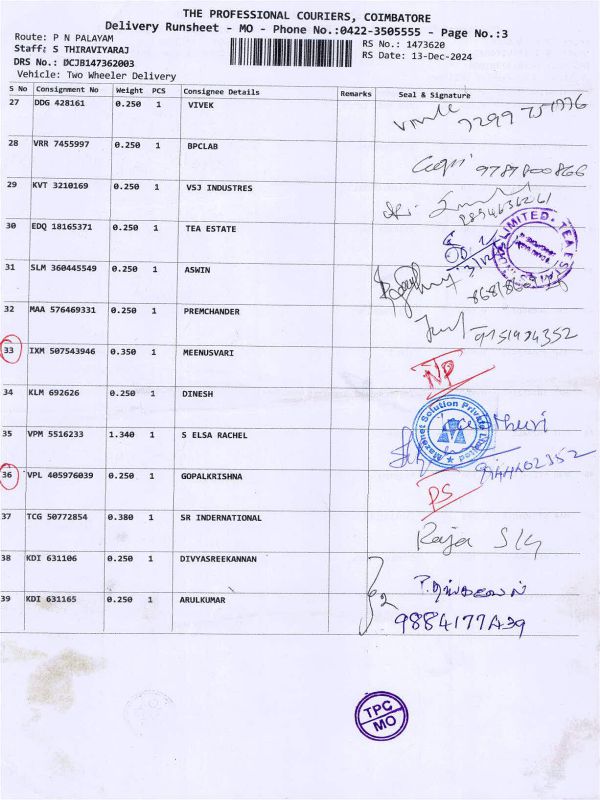 THE PROFESSIONAL COURIERS, COIMBATORE
Delivery Runsheet - MO - Phone No.:0422-3505555 - Page No.:3
Route: P N PALAYAM
RS No.: 1473620
Staff: S THIRAVIYARAJ
RS Date: 13-Dec-2024
DRS No.: DCJB147362003
Vehicle: Two Wheeler Delivery
S No Consignment No Weight PCS Consignee Details Remarks Seal & Signature
27 DDG 428161 0.250 1 VIVEK
28 VRR 7455997 0.250 1 BPCLAB 9787800866
29 KVT 3210169 0.250 1 VSJ INDUSTRES
30 EDQ 18165371 0.250 1 TEA ESTATE
31 SLM 360445549 0.250 1 ASWIN
32 MAA 576469331 0.250 1 PREMCHANDER
33 IXM 507543946 0.350 1 MEENUSVARI NP
34 KLM 692626 0.250 1 DINESH
35 VPM 5516233 1.340 1 S ELSA RACHEL
36 VPL 405976039 0.250 1 GOPALKRISHNA PS
37 TCG 50772854 0.380 1 SR INDERNATIONAL Raja
38 KDI 631106 0.250 1 DIVYASREEKANNAN
39 KDI 631165 0.250 1 ARULKUMAR
TPC
MO